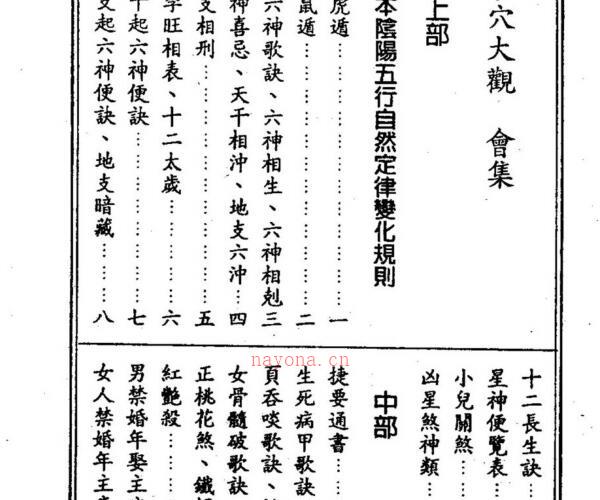 穴大觀　會集
上部
本陰陽五行自然定律變化規則
虎遁……………一
鼠遁……………二
六神歌訣、六神相生、六神相剋 三
神喜忌、天干相沖、地支六沖… 四
支相刑……………五
字旺相表、十二太歲……………六
干起六神便訣……………七
支起六神便訣、地支暗藏……… 八
十二長生訣
星神便覽表…
小兒關煞…
凶星煞神類…
中部
捷要通書……
生死病甲歌訣
頁吞啖歌訣、
女骨髓破歌訣
正桃花煞、鐵
紅艷殺……
男禁婚年娶主
女人禁婚年主
nayona.cn